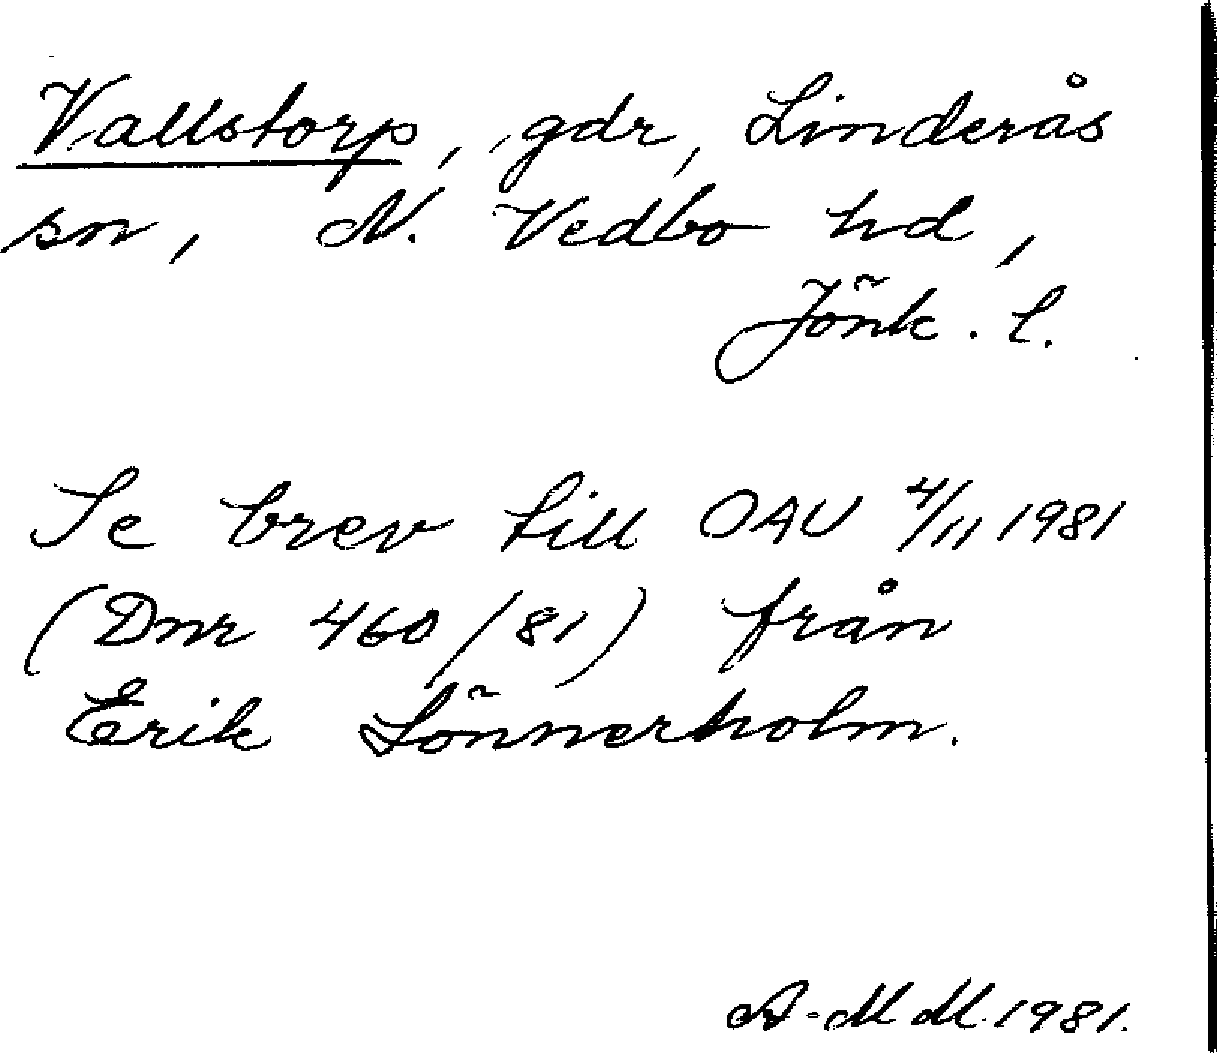 Vallstorp, gdr, Linderås
sn, N. Vedbo hd,
Jönk. l.
Se brev till OAU 4/11 1981
(Dnr 460/81) från
Erik Lönnerholm.
A-MM. 1981.